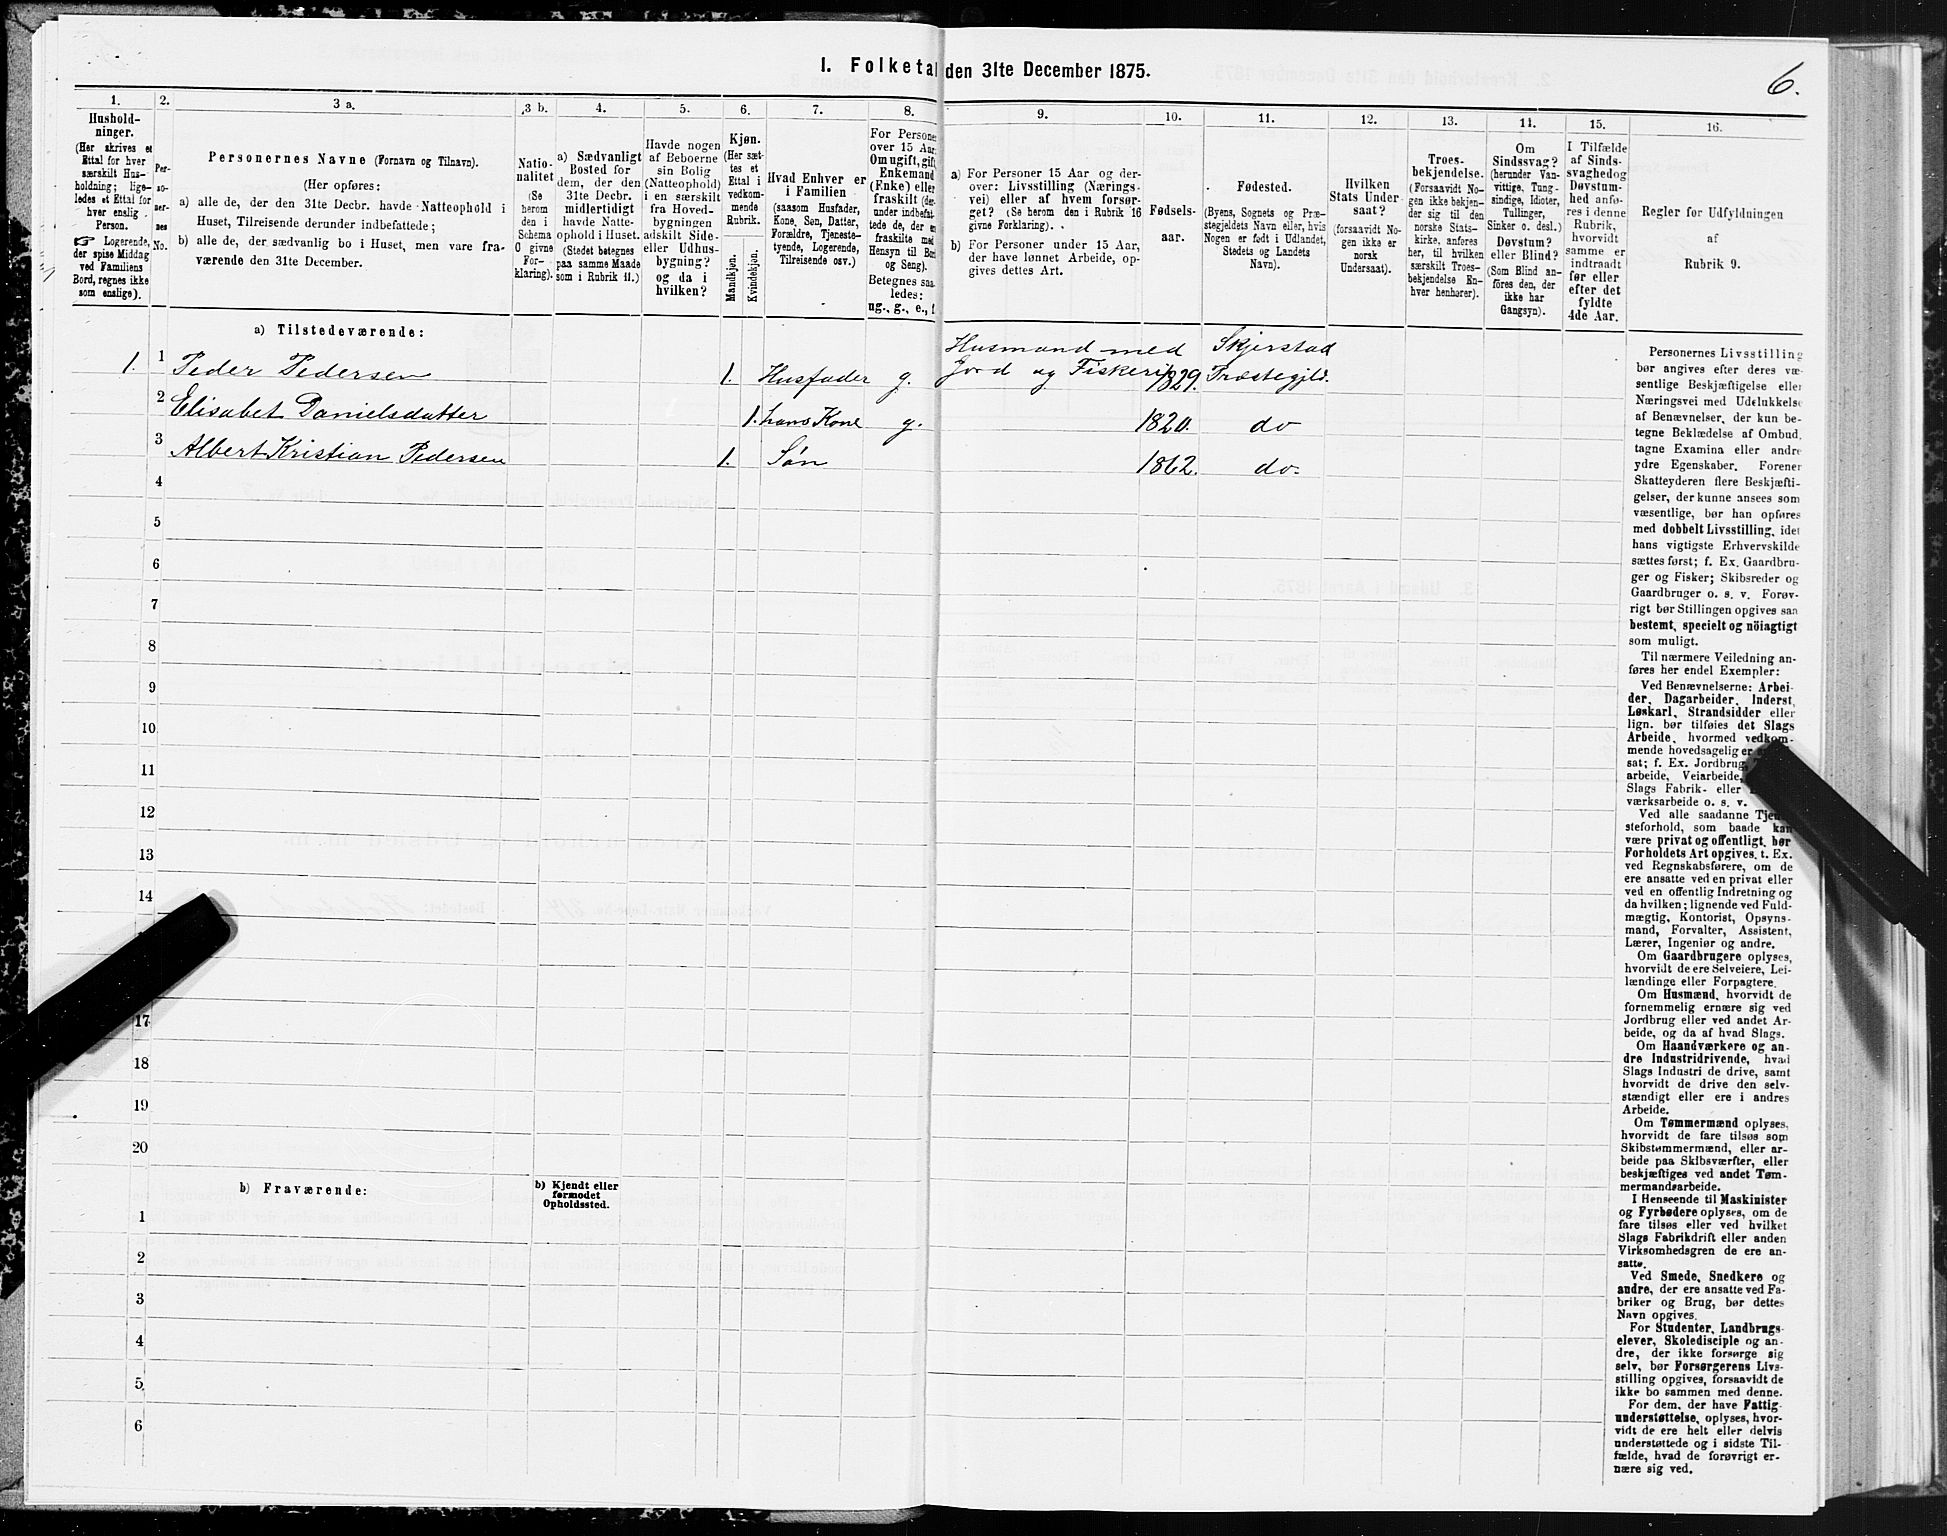 6.
I. Folketal den 31te December 1875.
1.
Hushold-
ninger.
(Her skrives et
Ettal for hver
særskilt Hus-
holdning; lige-
ledes et Ettal for
hver enslig
Person.
☞ Logerende,
der spise Middag
ved Familiens
Bord, regnes ikke
som enslige).
2.
Per-
so-
ner-
nes
No.
3 a.
Personernes Navne (Fornavn og Tilnavn).
(Her opføres:
a) alle de, der den 31te Decbr. havde Natteophold i
Huset, Tilreisende derunder indbefattede;
b) alle de, der sædvanlig bo i Huset, men vare fra-
værende den 31te December.
3 b.
Natio-
nalitet
(Se
herom
den i
Schema
O givne
For-
klaring).
4.
a) Sædvanligt
Bosted for
dem, der den
31te Decbr.
midlertidigt
havde Natte-
ophold i Huset.
(Stedet betegnes
paa samme Maade
som i Rubrik 11.)
5.
Havde nogen
af Beboerne
sin Bolig
(Natteophold)
i en særskilt
fra Hoved-
bygningen
adskilt Side-
eller Udhus-
bygning?
og da i
hvilken?
6.
Kjøn.
(Her sæt-
tes et
Ettal i
vedkom-
mende
Rubrik.
Mandkjøn.
Kvindekjøn.
7.
Hvad Enhver er
i Familien
(saasom Husfader,
Kone, Søn, Datter,
Forældre, Tjeneste-
tyende, Logerende,
Tilreisende osv.)
8.
For Persone
over 15 Aar
Om ugift, gift
Enkemand
(Enke) eller
fraskilt (der-
under indbefat-
tede de, der e
fraskilte med
Hensyn til Bo
og Seng).
Betegnes saa
ledes:
ug., g., e., f
9.
a) For Personer 15 Aar og der-
over: Livsstilling (Nærings-
vei) eller af hvem forsør-
get? (Se herom den i Rubrik 16
givne Forklaring).
b) For Personer under 15 Aar,
der have lønnet Arbeide, op-
gives dettes Art.
10.
Fødsels-
aar.
11.
Fødested.
(Byens, Sognets og Præ-
stegjeldets Navn eller, hvis
Nogen er født i Udlandet,
Stedets og Landets
Navn).
12.
Hvilken
Stats Under
saat?
(forsaavidt No-
gen ikke er
norsk
Undersaat).
13.
Troes-
bekjendelse.
(Forsaavidt No-
gen ikke bekjen-
der sig til den
norske Stats-
kirke, anføres
her, til hvilken
særskilt Troes-
bekjendelse En-
hver henhører).
14.
Om
Sindssvag?
(herunder Van-
vittige, Tung-
sindige, Idioter,
Tullinger,
Sinker o. desl.)
Døvstum?
eller Blind?
(Som Blind an-
føres den, der
ikke har
Gangsyn).
15.
I Tilfælde
af Sinds-
svaghed og
Døvstum-
hed anfø-
res i denne
Rubrik,
hvorvidt
samme er
indtraadt
før eller
efter det
fyldte
4de Aar.
16.
Regler for Udfyldningen
af
Rubrik 9.
a) Tilstedeværende:
Husmand med Skjerstad
1. 1 Peder Pedersen 1. Husfader g. Jord og Fiskeri 1829. Præstegjld.
2 Elisabet Danielsdatter 1. hans Kone g. 1820. do
3 Albert Kristian Pedersen 1. Søn 1862. do.
4
5
6
7
8
9
10
11
12
13
14
17
18
19
20
b) Fraværende:
b) Kjendt eller
formodet
Opholdssted.
1
2
3
4
5
6
Personernes Livsstilling
bør angives efter deres væ-
sentlige Beskjæftigelse eller
Næringsvei med Udelukkelse
af Benævnelser, der kun be-
tegne Beklædelse af Ombud,
tagne Examina eller andre
ydre Egenskaber. Forener
Skatteyderen flere Beskjæfti-
gelser, der kunne ansees som
væsentlige, bør han opføres
med dobbelt Livsstilling, idet
hans vigtigste Erhvervskilde
sættes først; f. Ex. Gaardbru-
ger og Fisker; Skibsreder og
Gaardbruger o. s. v. Forøv-
rigt bør Stillingen opgives saa
bestemt, specielt og nöiagtigt
som muligt.
Til nærmere Veiledning an-
føres her endel Exempler:
Ved Benævnelserne: Arbei-
der, Dagarbeider, Inderst,
Løskarl, Strandsidder eller
lign. bør tilføies det Slags
Arbeide, hvormed vedkom-
mende hovedsagelig er
sat; f. Ex. Jordbrug,
arbeide, Veiarbeide,
Slags Fabrik- eller
værksarbeide o. s. v.
Ved alle saadanne Tjen
steforhold, som baade kan
være privat og offentligt, bør
Forholdets Art opgives, t. Ex.
ved Regnskabsførere, om de
ere ansatte ved en privat eller
ved en offentlig Indretning og
da hvilken; lignende ved Fuld-
mægtig, Kontorist, Opsyns-
mand, Forvalter, Assistent,
Lærer, Ingeniør og andre.
Om Gaardbrugere oplyses,
hvorvidt de ere Selveiere, Lei-
lændinge eller Forpagtere.
Om Husmænd, hvorvidt de
fornemmelig ernære sig ved
Jordbrug eller ved andet Ar-
beide, og da af hvad Slags.
Om Haandværkere og an-
dre Industridrivende, hvad
Slags Industri de drive, samt
hvorvidt de drive den selv-
stændigt eller ere i andres
Arbeide.
Om Tømmermænd oplyses,
hvorvidt de fare tilsøs som
Skibstømmermænd, eller ar-
beide paa Skibsværfter, eller
beskjæftiges ved andet Tøm-
mermandsarbeide.
I Henseende til Maskinister
og Fyrbødere oplyses, om de
fare tilsøs eller ved hvilket
Slags Fabrikdrift eller anden
Virksomhedsgren de ere an-
satte.
Ved Smede, Snedkere og
andre, der ere ansatte ved Fa-
briker og Brug, bør dettes
Navn opgives.
For Studenter, Landbrugs-
elever, Skoledisciple og an-
dre, der ikke forsørge sig
selv, bør Forsørgerens Livs-
stilling opgives, forsaavidt de
ikke bo sammen med denne.
For dem, der have Fattig-
understøttelse, oplyses, hvor-
vidt de ere helt eller delvis
understøttede og i sidste Til-
fælde, hvad de forøvrigt er-
nære sig ved.